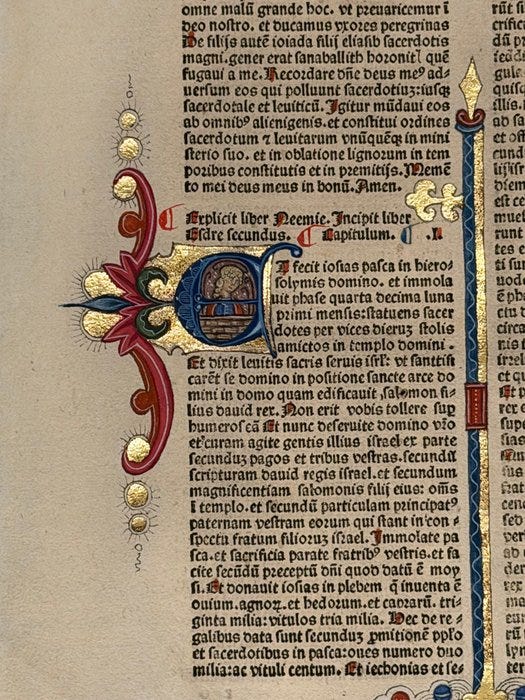 omne malū grande hoc. vt preuaricemur ī
deo nostro. et ducamus vxores peregrinas
De filijs autē ioiada filij eliasib sacerdotis
magni. gener erat sanaballath horonitꝭ quē
fugaui a me. Recordare dn̄e deus me⁹ ad⸗
uersum eos qui polluunt sacerdotiuꝫ: iusqꝫ
sacerdotale et leuiticū. Igitur mūdaui eos
ab omnib⁹ alienigenis. et constitui ordines
sacerdotum ⁊ leuitarum vnūquēqꝫ in mini
sterio suo. et in oblatione lignorum in tem
poribus constitutis et in premitijs. Memē
to mei deus meus in bonū. Amen.
Explicit liber Neemie. Incipit liber
Esdre secundus. Capitulum. .I.
ET fecit iosias pasca in hiero⸗
solymis domino. et immola
uit phase quarta decima luna
primi mensis: statuens sacer
dotes per vices dieruꝫ stolis
amictos in templo domini.
Et dixit leuitis sacris seruis isrl̄: vt sanctifi
carēt se domino in positione sancte arce do
mini in domo quam edificauit salomon fi⸗
lius dauid rex. Non erit vobis tollere suꝑ
humeros eā Et nunc deseruite domino vr̄o
et curam agite gentis illius israel ex parte
secunduꝫ pagos et tribus vestras. secundū
scripturam dauid regis israel. et secundum
magnificentiam salomonis filij eius: om̄s
ī templo. et secundū particulam principat⁹
paternam vestram eorum qui stant in con⸗
spectu fratum filioruꝫ israel. Immolate pa
sca. et sacrificia parate fratrib⁹ vestris. et fa
cite secūdū preceptū dn̄i quod datū ē moy
si. Et donauit iosias in plebem q̄ inuenta ē
ouium. agnoꝝ. et hedorum. et caprarū. tri⸗
ginta milia: vitulos tria milia. Hec de re⸗
galibus data sunt secunduꝫ ꝓmitionē ppl̄o
et sacerdotibus in pasca: oues numero duo
milia: ac vituli centum. Et iechonias et se⸗